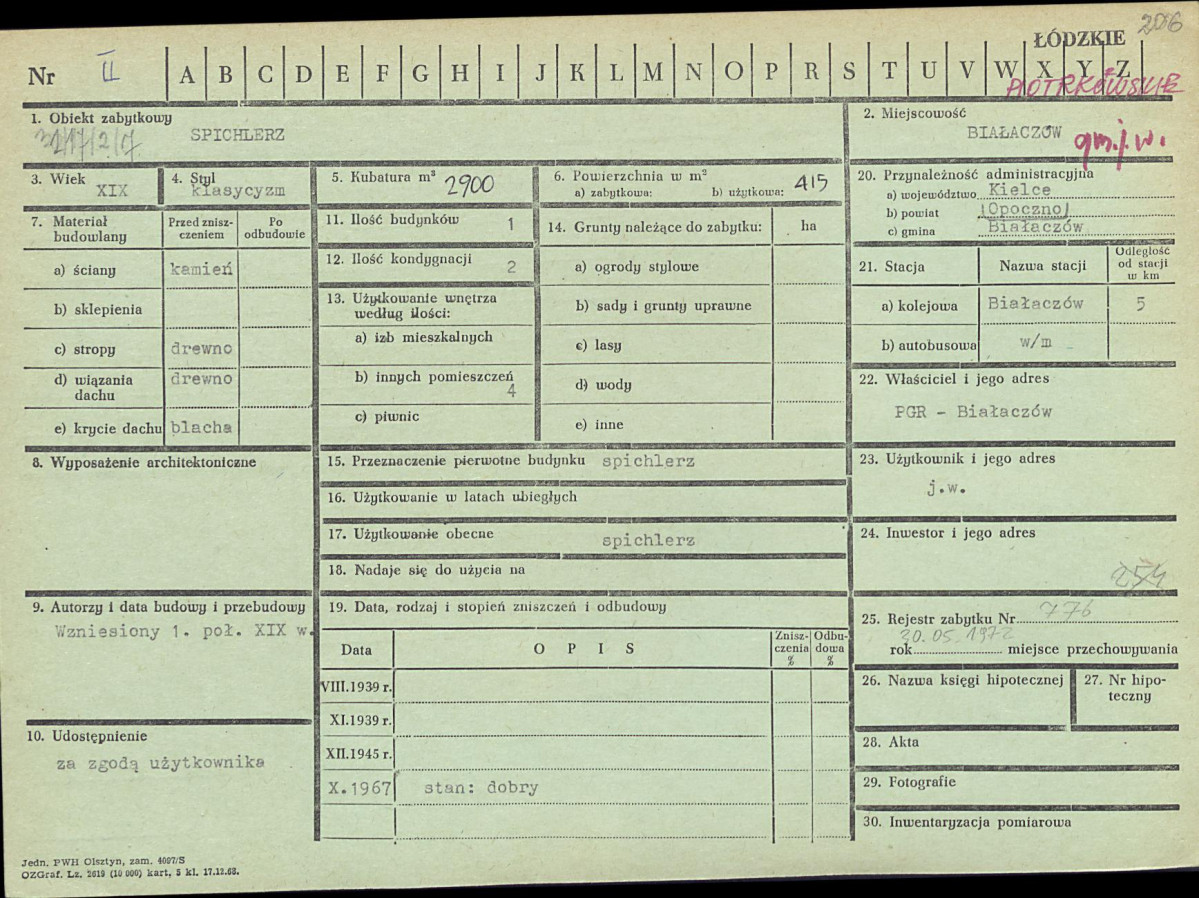 206
ŁÓDZKIE
Nr II A B C D E F G H I J K L M N O P R S T U V W X Y Z
PIOTRKOWSKIE
1. Obiekt zabytkowy
SPICHLERZ
2. Miejscowość
BIAŁACZÓW
gm. j. w.
3. Wiek
XIX
4. Styl
klasycyzm
5. Kubatura m³ 2900
6. Powierzchnia w m²
a) zabytkowa: b) użytkowa: 415
20. Przynależność administracyjna
a) województwo Kielce
b) powiat (Opoczno)
c) gmina Białaczów
7. Materiał budowlany
Przed zniszczeniem
Po odbudowie
a) ściany kamień
b) sklepienia
c) stropy drewno
d) wiązania dachu drewno
e) krycie dachu blacha
11. Ilość budynków 1
12. Ilość kondygnacji 2
13. Użytkowanie wnętrza według ilości:
a) izb mieszkalnych
b) innych pomieszczeń 4
c) piwnic
14. Grunty należące do zabytku: ha
a) ogrody stylowe
b) sady i grunty uprawne
c) lasy
d) wody
e) inne
21. Stacja Nazwa stacji Odległość od stacji w km
a) kolejowa Białaczów 5
b) autobusowa w/m
22. Właściciel i jego adres
PGR - Białaczów
8. Wyposażenie architektoniczne
15. Przeznaczenie pierwotne budynku spichlerz
16. Użytkowanie w latach ubiegłych
17. Użytkowanie obecne spichlerz
18. Nadaje się do użycia na
23. Użytkownik i jego adres
j.w.
24. Inwestor i jego adres
254
9. Autorzy i data budowy i przebudowy
Wzniesiony 1. poł. XIX w.
19. Data, rodzaj i stopień zniszczeń i odbudowy
Data OPIS Zniszczenia % Odbudowa %
VIII.1939 r.
XI.1939 r.
XII.1945 r.
X.1967 stan: dobry
25. Rejestr zabytku Nr 776
30.05.1972
rok miejsce przechowywania
26. Nazwa księgi hipotecznej
27. Nr hipoteczny
10. Udostępnienie
za zgodą użytkownika
28. Akta
29. Fotografie
30. Inwentaryzacja pomiarowa
Jedn. PWH Olsztyn, zam. 4097/S
OZGraf. Lz. 2619 (10 000) kart, 5 kl. 17.12.68.